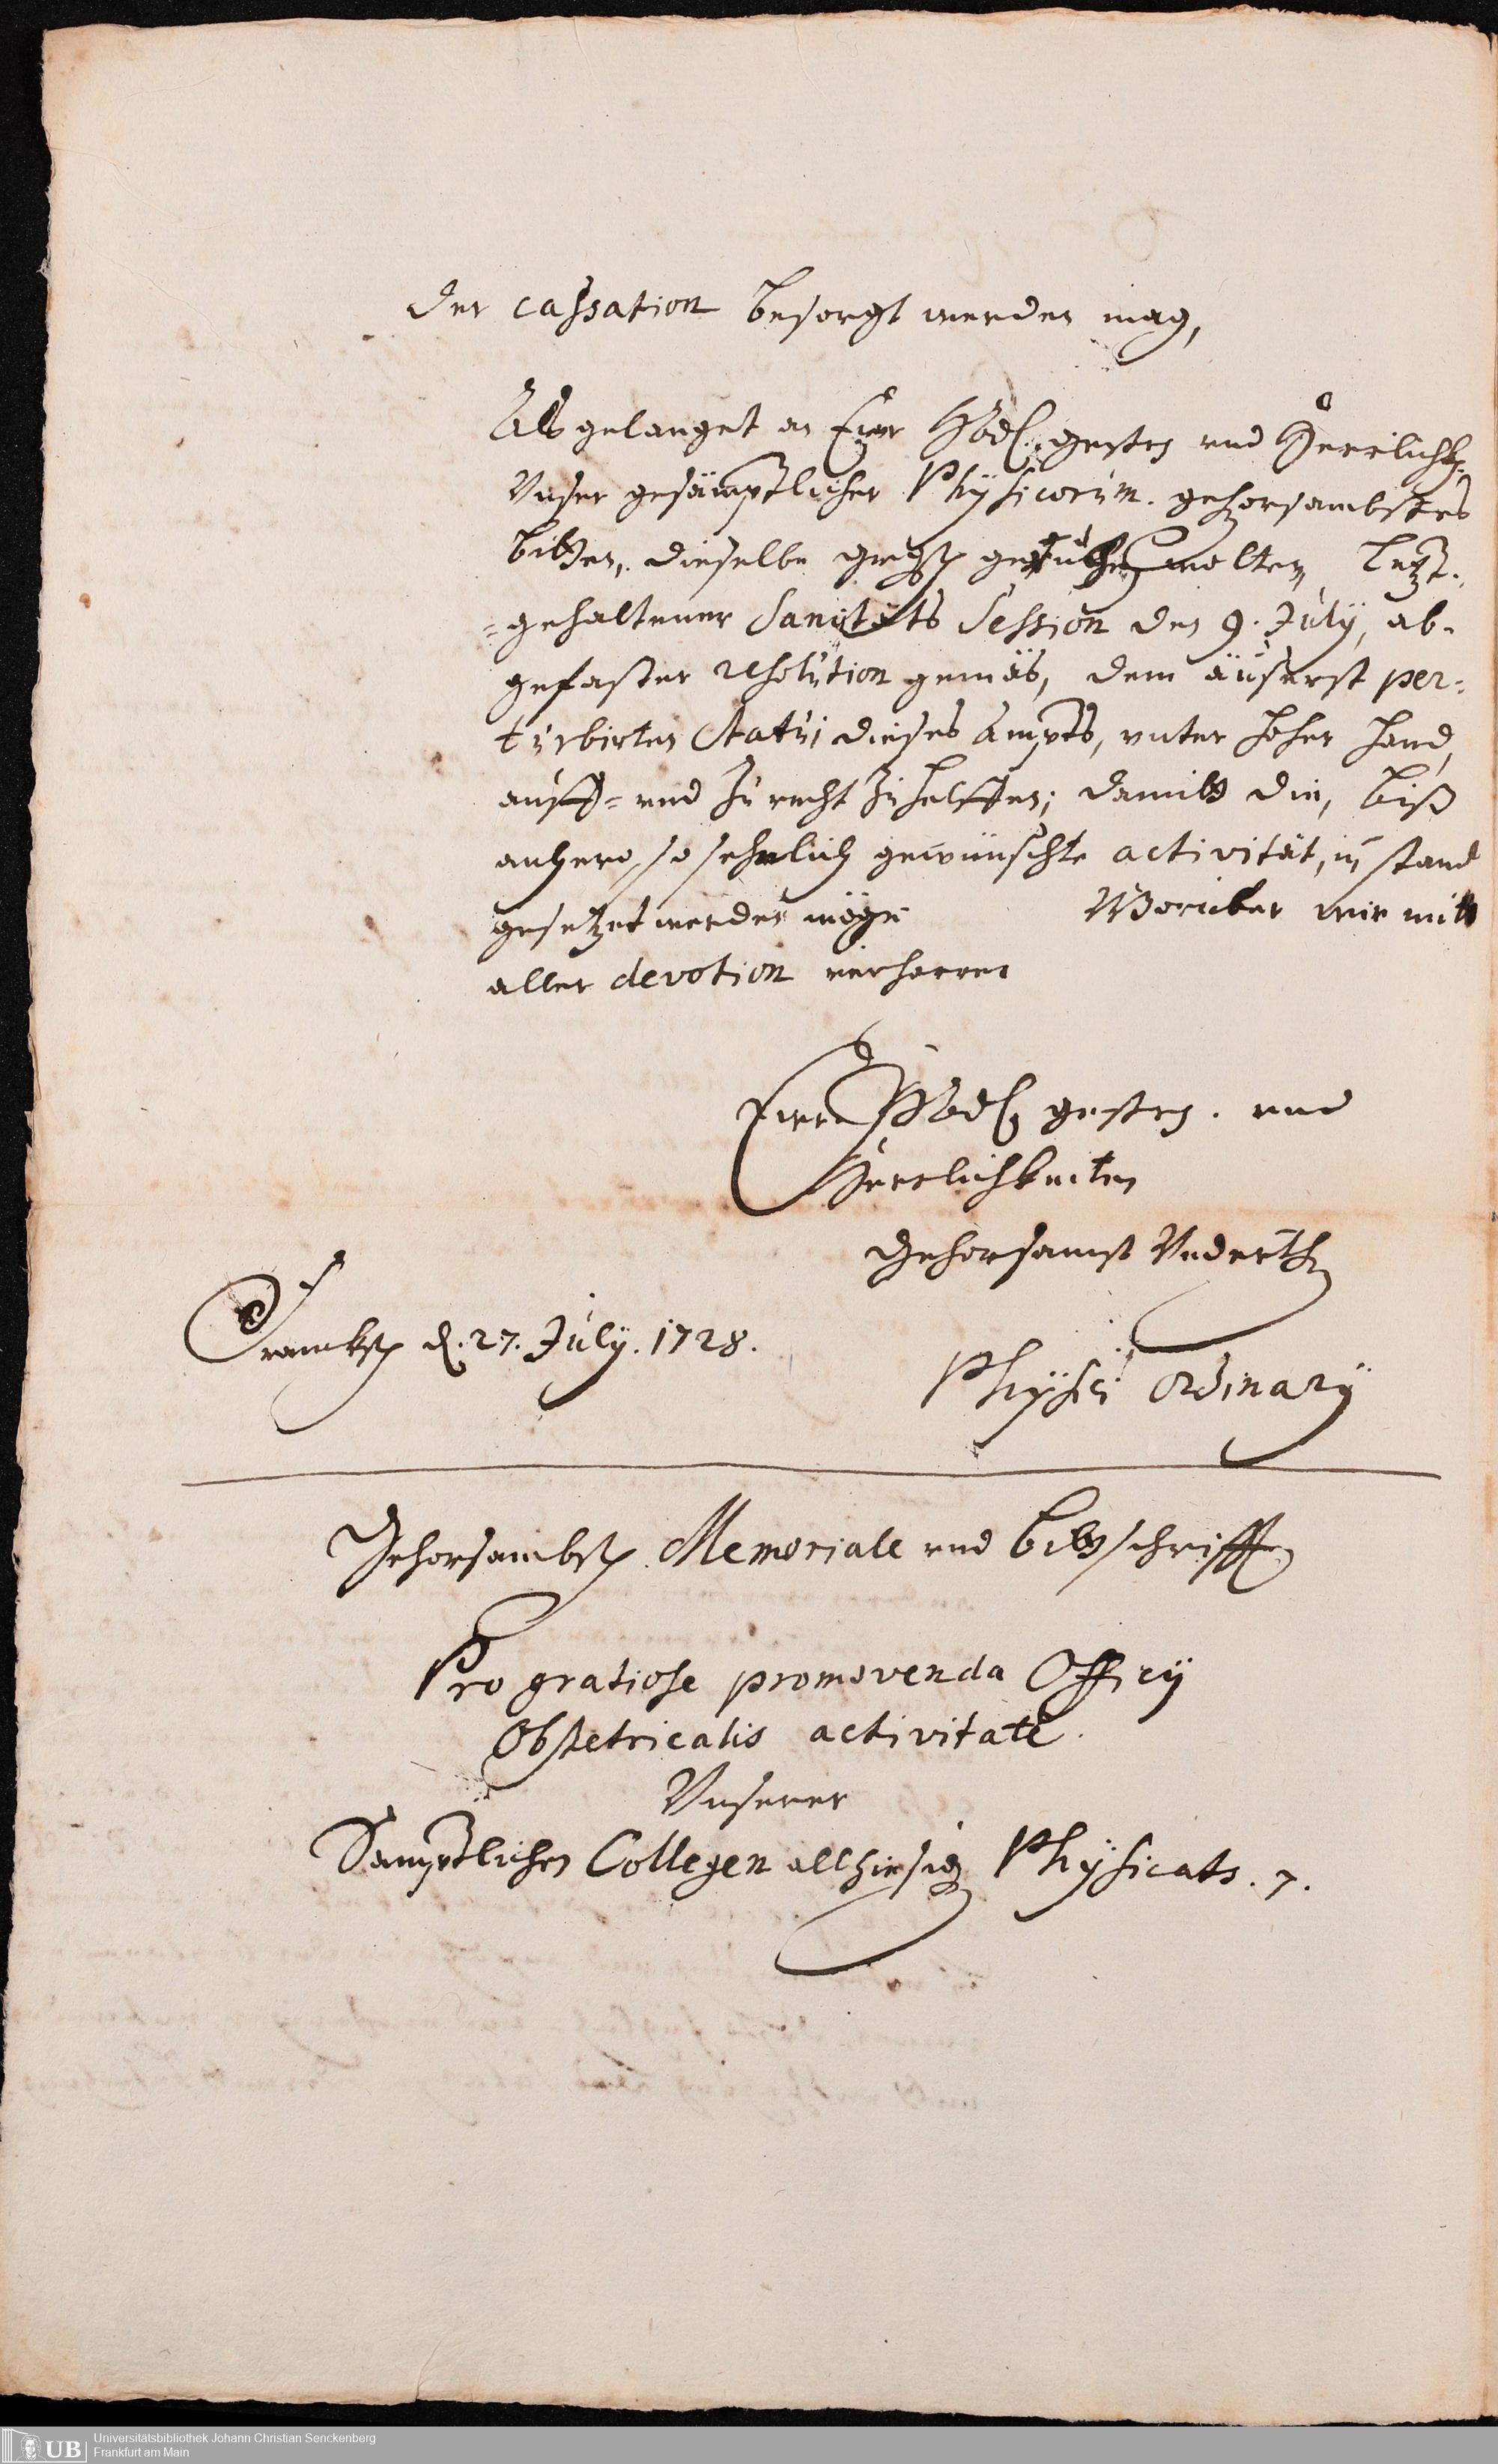 der cassation besorgt werden mag,
Als gelanget an Ewer WohlEdl. gestrg. und Herrlichk.
Unser gesämptlicher Physicorum gehorsambstes
bitten, dieselbe großg. geruhen wolten, letzt-
=gehaltener Sanitäts Session den 9. July, ab-
gefaster resolution gemäs, dem äuserst per-
turbirten Statui dieses Ampts, unter hoher Hand,
auff= und zu recht zu helffen; damitt die, biß
anhero, so sehnlich gewünschte activität, in stand
gesetzet werden möge Worüber wir mitt
aller devotion verharren
Ewer WohlEdl. gestrg. und
Herrlichkeiten
Gehorsamst Underth.
Franckf. d. 27. July. 1728.
Physici Ordinarÿ
Gehorsambst. Memoriale und bittschrifften
Pro gratiose promovenda Officÿ
Obstetricalis activitate.
Unserer
Samptlichen Collegen allhiesig. Physicats.
UB
Universitätsbibliothek Johann Christian Senckenberg
Frankfurt am Main